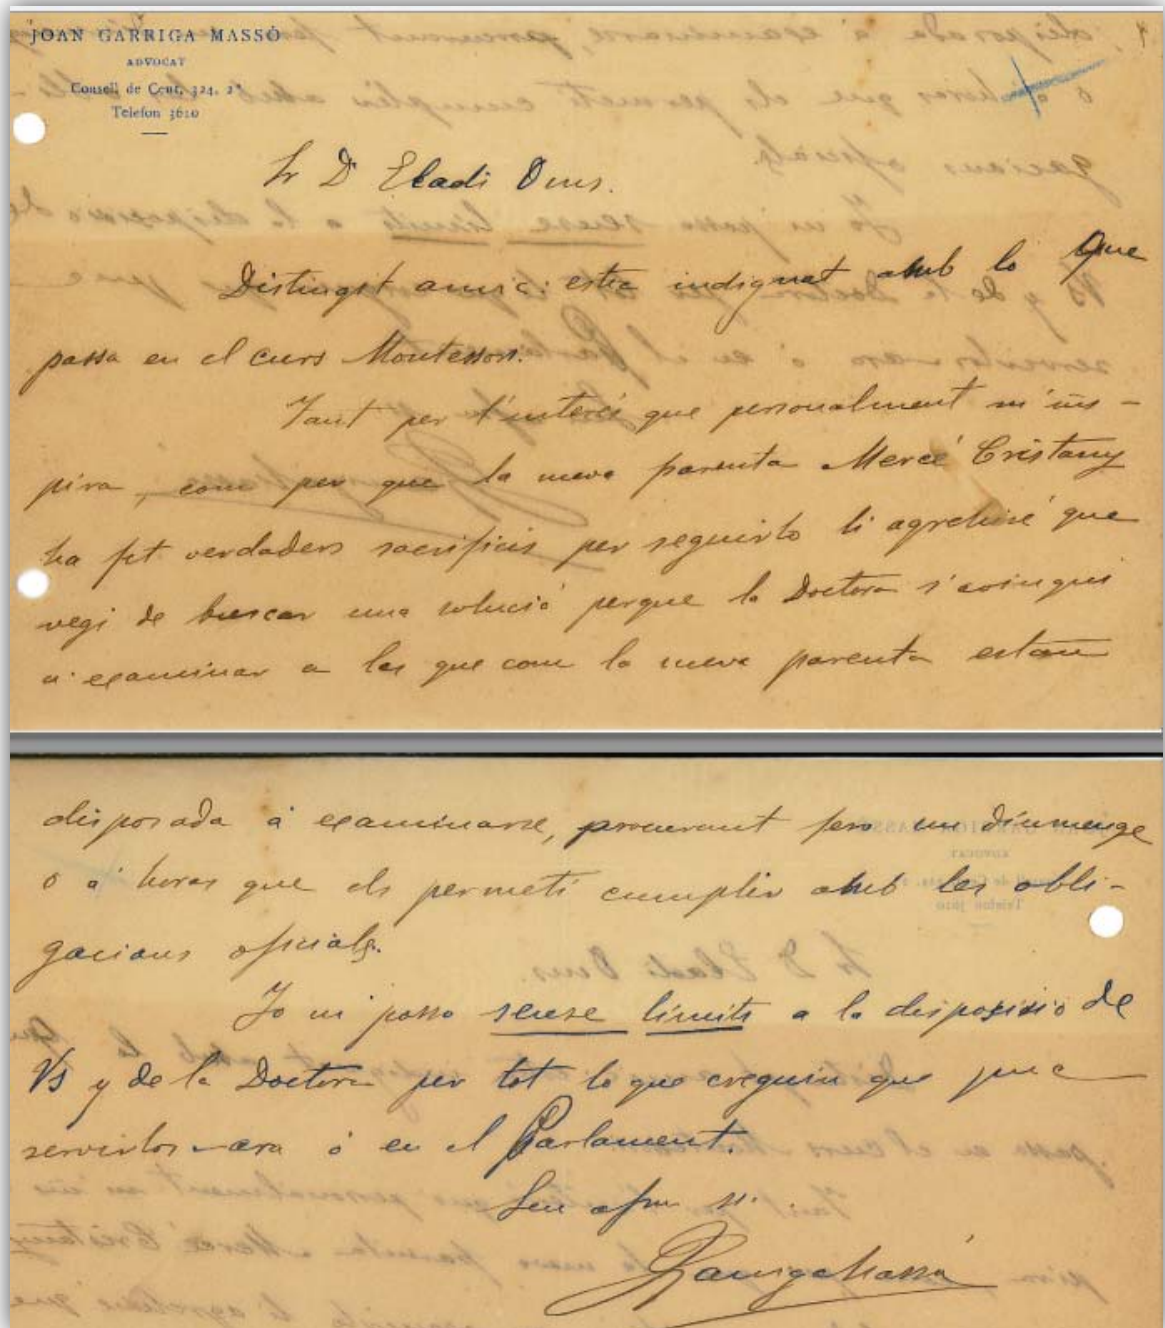 JOAN GARRIGA MASSÓ
ADVOCAT
Consell de Cent, 324, 2º
Telefon 3610
Sr D Eladi Oms.
Distingit amic: estic indignat amb lo que
passa en el curs Montessori.
Tant per l'interés que personalment m'ins-
pira, com per que la meva parenta Mercé Cristany
ha fet verdaders sacrificis per seguirlo li agrehiré que
vegi de buscar una solució perque la Doctora s'avingui
a examinar a las que com la meva parenta estan
disposada á examinarse, procurant pero un diumenge
o á horas que els permeti cumplir amb les obli-
gacions oficials.
Jo m posso sense limits a la disposisio de
Vs y de la Doctora per tot lo que creguin que puc
servirlos ara ó en el Parlament.
Seu afm
GarrigaMassó